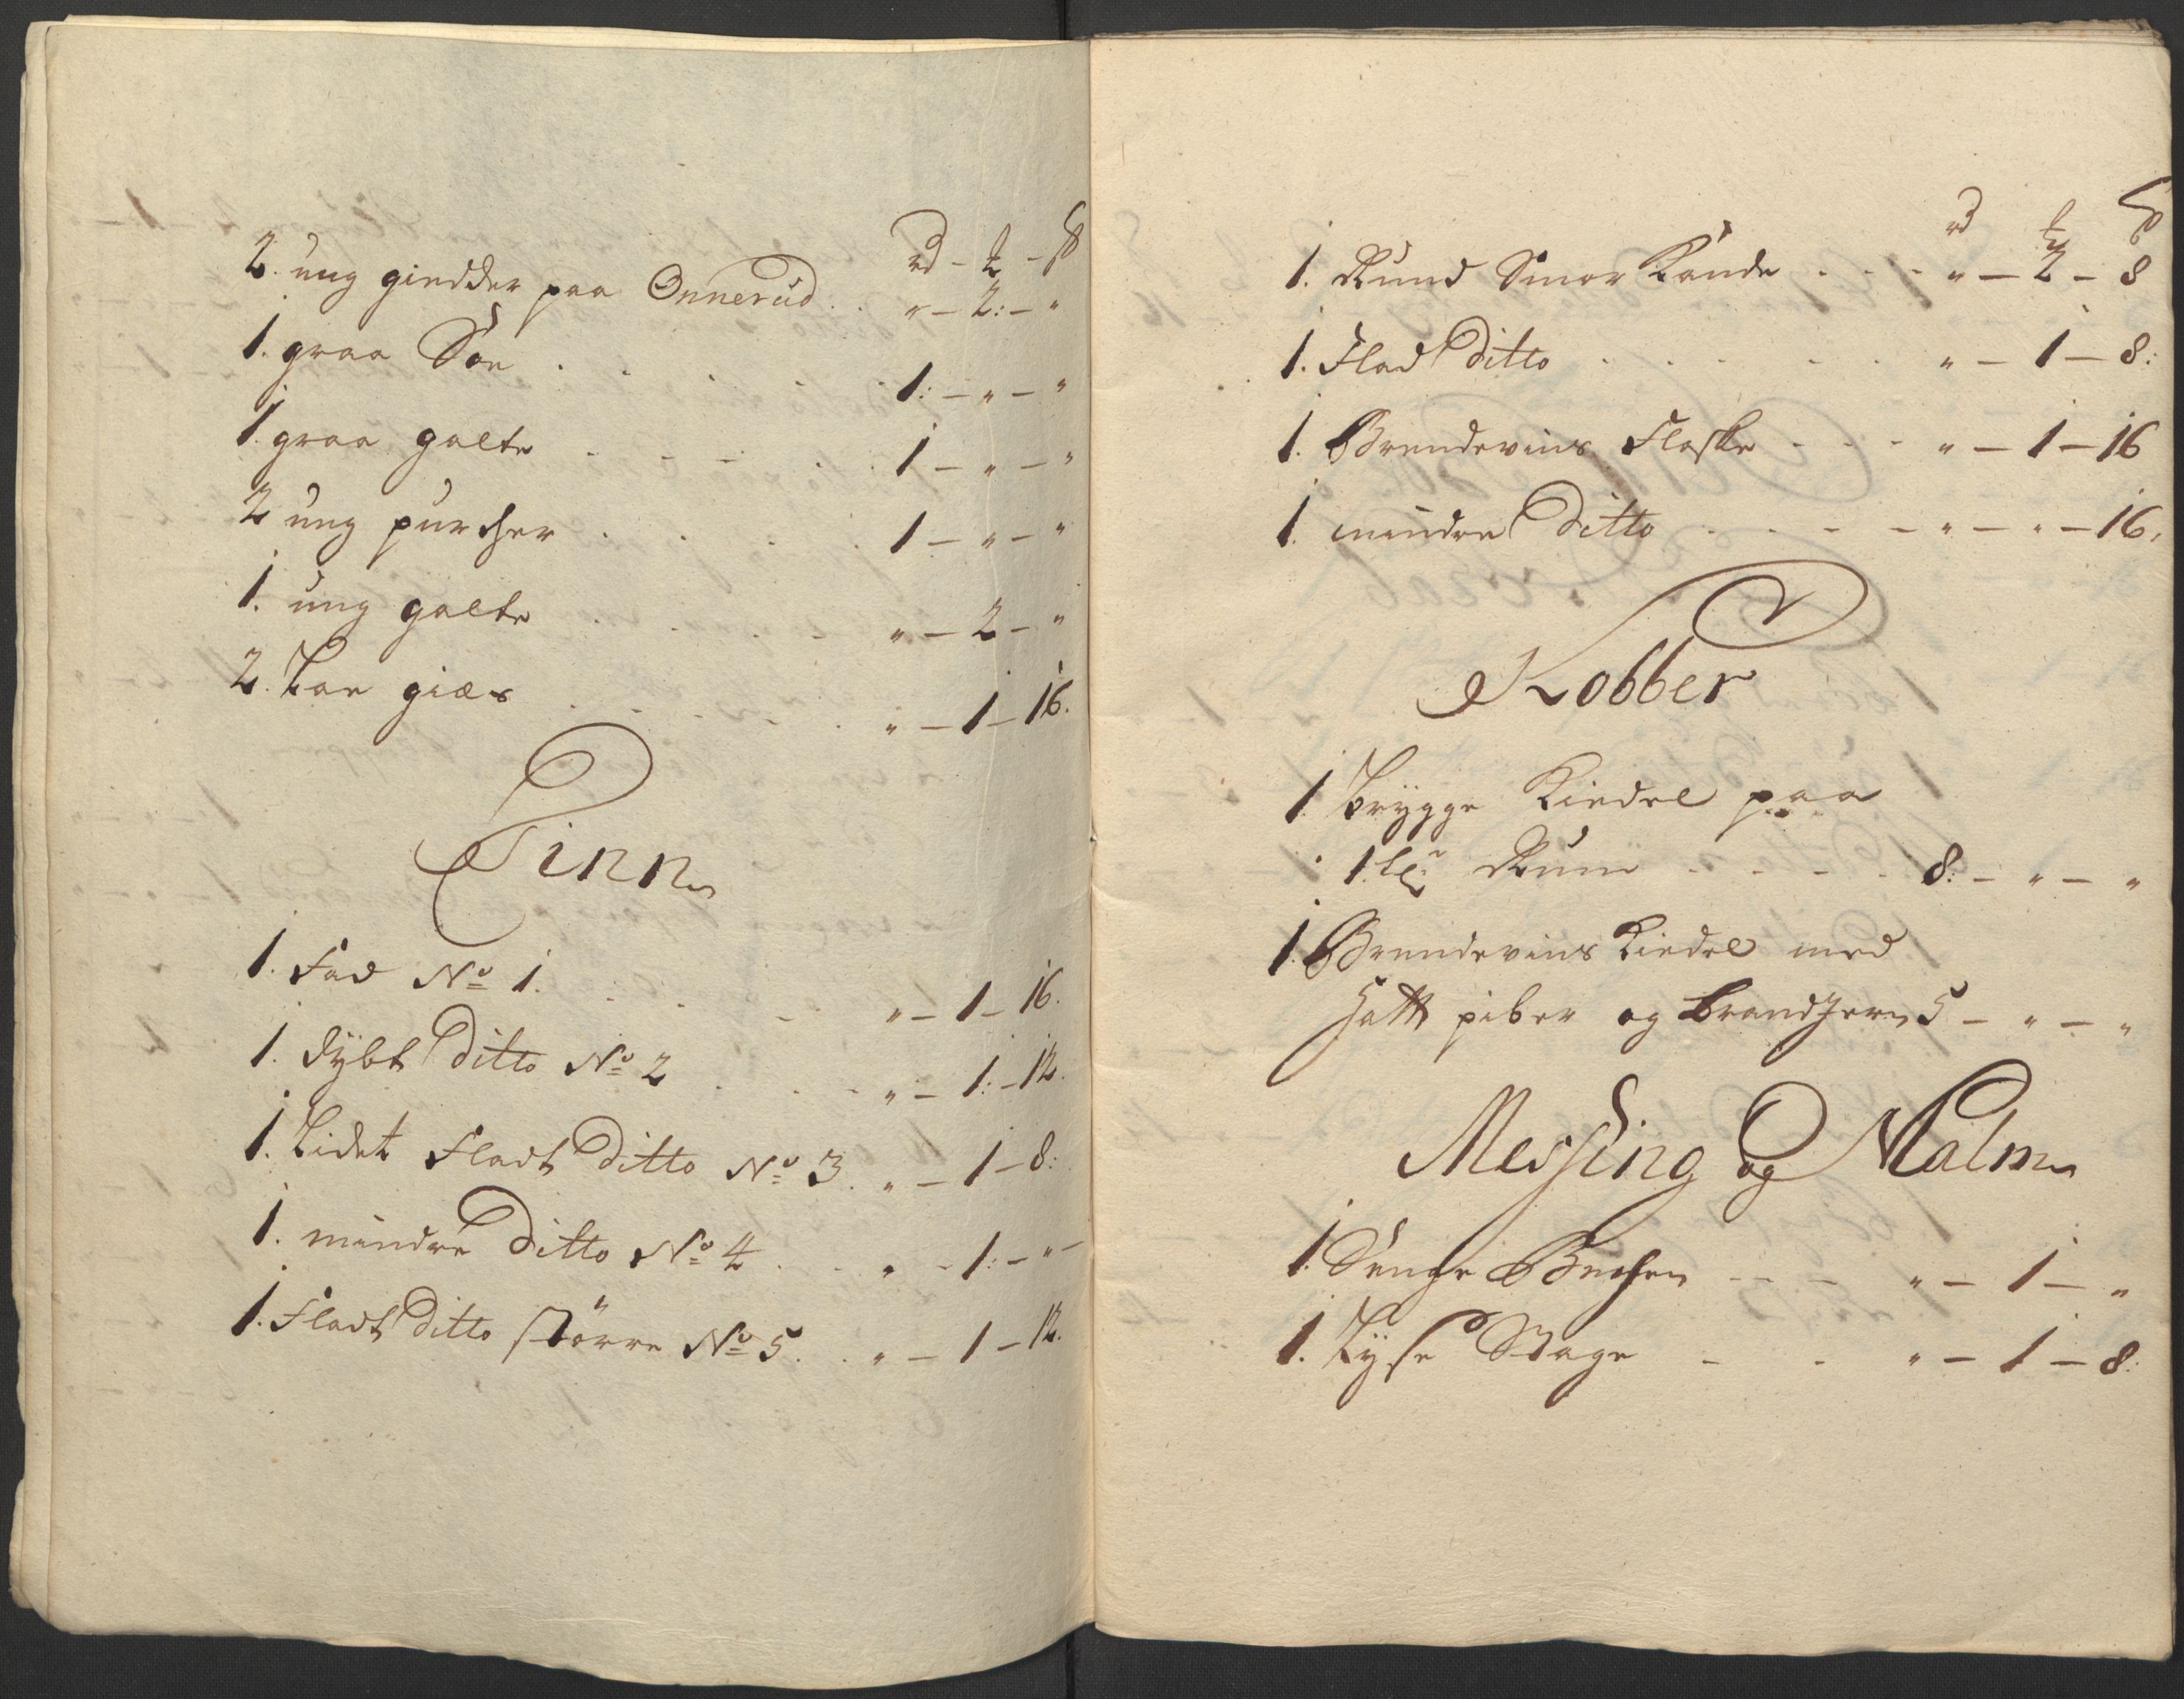 rd - ℔ - ß
2. ung giedder paa Onnerud . . „ - 2: - „
1. graa Soe . . . . . 1: - „ - „
1. graa galte . . . . . 1 - „ - „
2 ung purcher . . . . 1 - „ - „
1. ung galte . . . . „ - 2 - „
2. Par giæs . . . . . „ - 1 - 16.
Tinn
1. Fad No 1. . . . . „ - 1 - 16.
1. dybt Ditto No 2 . . . „ - 1: - 12.
1. Lidet Fladt Ditto No 3. „ - 1 - 8:
1. mindre Ditto No 4 . . . „ - 1: - „
1. Fladt Ditto större No 5. . „ - 1 - 12.
rd ß
1. Rund Smør Kande . . . „ - 2 - 8
1. Flad Ditto . . . . . „ - 1 - 8:
1. Brendeviins Flaske - - - „ - 1 - 16
1. mindre Ditto . . - - - „ - „ - 16.
Kobber
1 brygge Kiedel paa
1 Rum - - - - 8: - „ - „
1. Brendeviins Kiedel med
Hatt piber og brandjern 5 - „ - „
Messing og Malm
1. Senge Bechen - - - „ - 1 - „
1. Lyse Stage - - „ - 1 - 8: